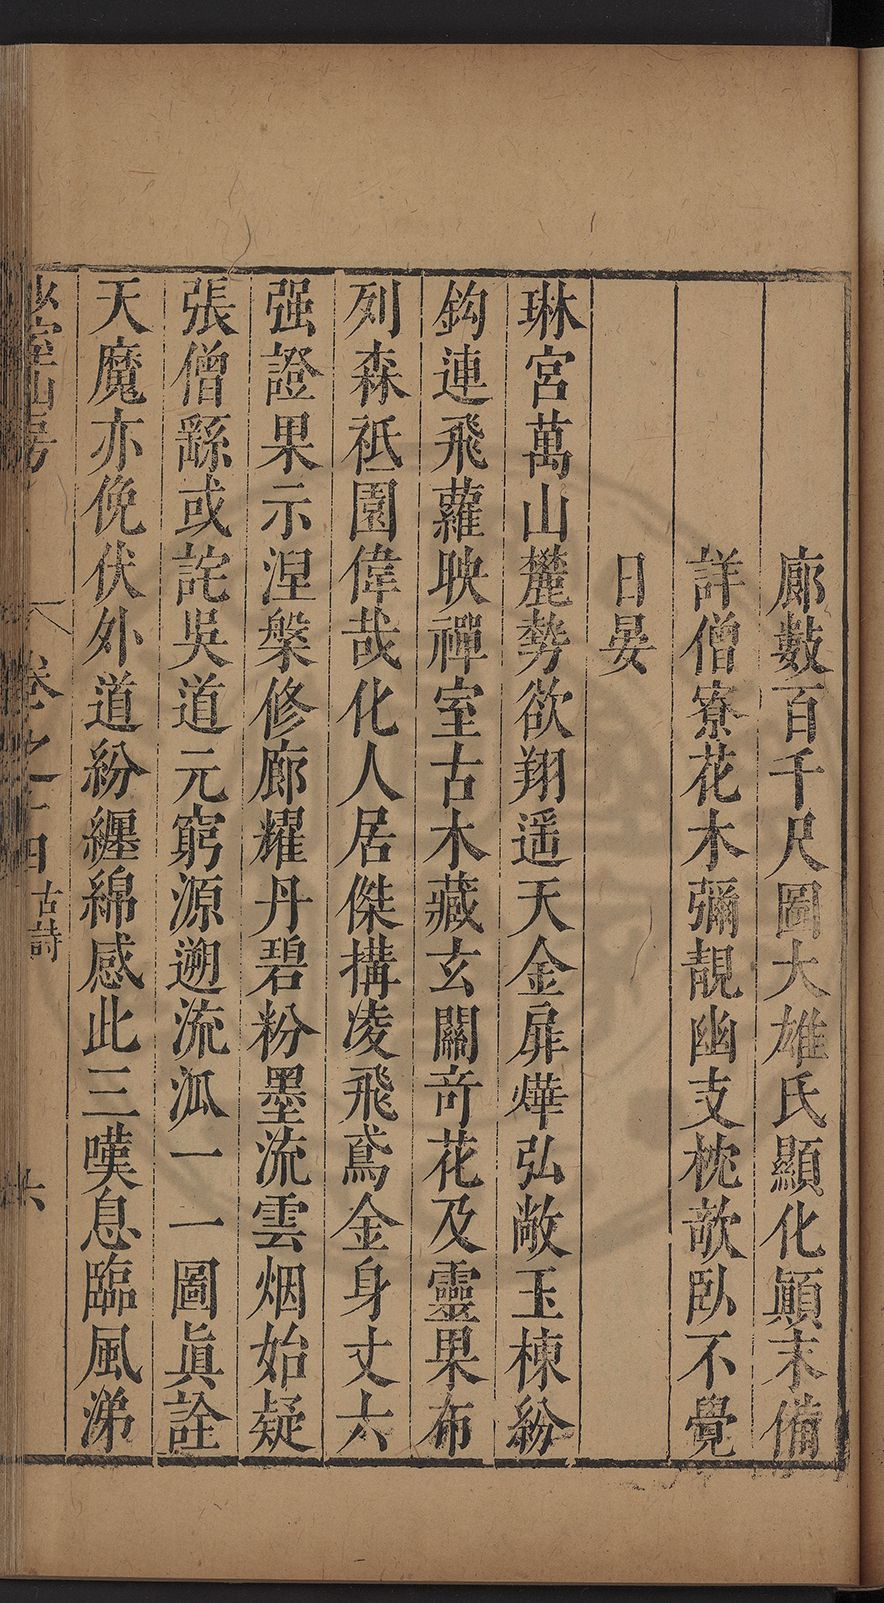 廊數百千尺圖大雄氏顯化顚末備
詳僧寮花木彌靚幽支枕欹臥不覺
日晏
琳宮萬山麓勢欲翔遥天金扉燁弘敞玉棟紛
鈎連飛蘿映禪室古木藏玄關竒花及靈果布
列森祗園偉哉化人居傑搆凌飛鳶金身丈六
强證果示涅槃修廊耀丹碧粉墨流雲烟始疑
張僧繇或詫吳道元窮源遡流泒一一圖眞詮
天魔亦俛伏外道紛纏綿感此三嘆息臨風涕
少室山房
卷之十四 古詩
六